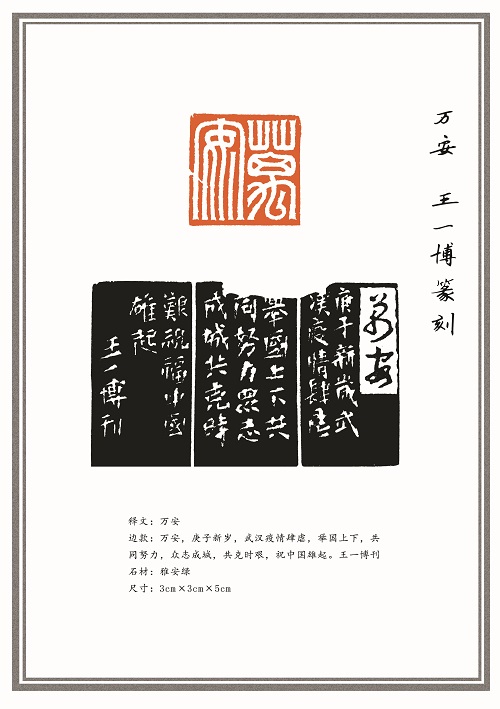 万安 王一博篆刻
萬安
萬安
庚子新歲武
漢疫情肆虐
舉國上下共
同努力眾志
成城共克時
艱祝福中國
雄起
王一博刊
释文：万安
边款：万安，庚子新岁，武汉疫情肆虐，举国上下，共
同努力，众志成城，共克时艰，祝中国雄起。王一博刊
石材：雅安绿
尺寸：3cm×3cm×5cm